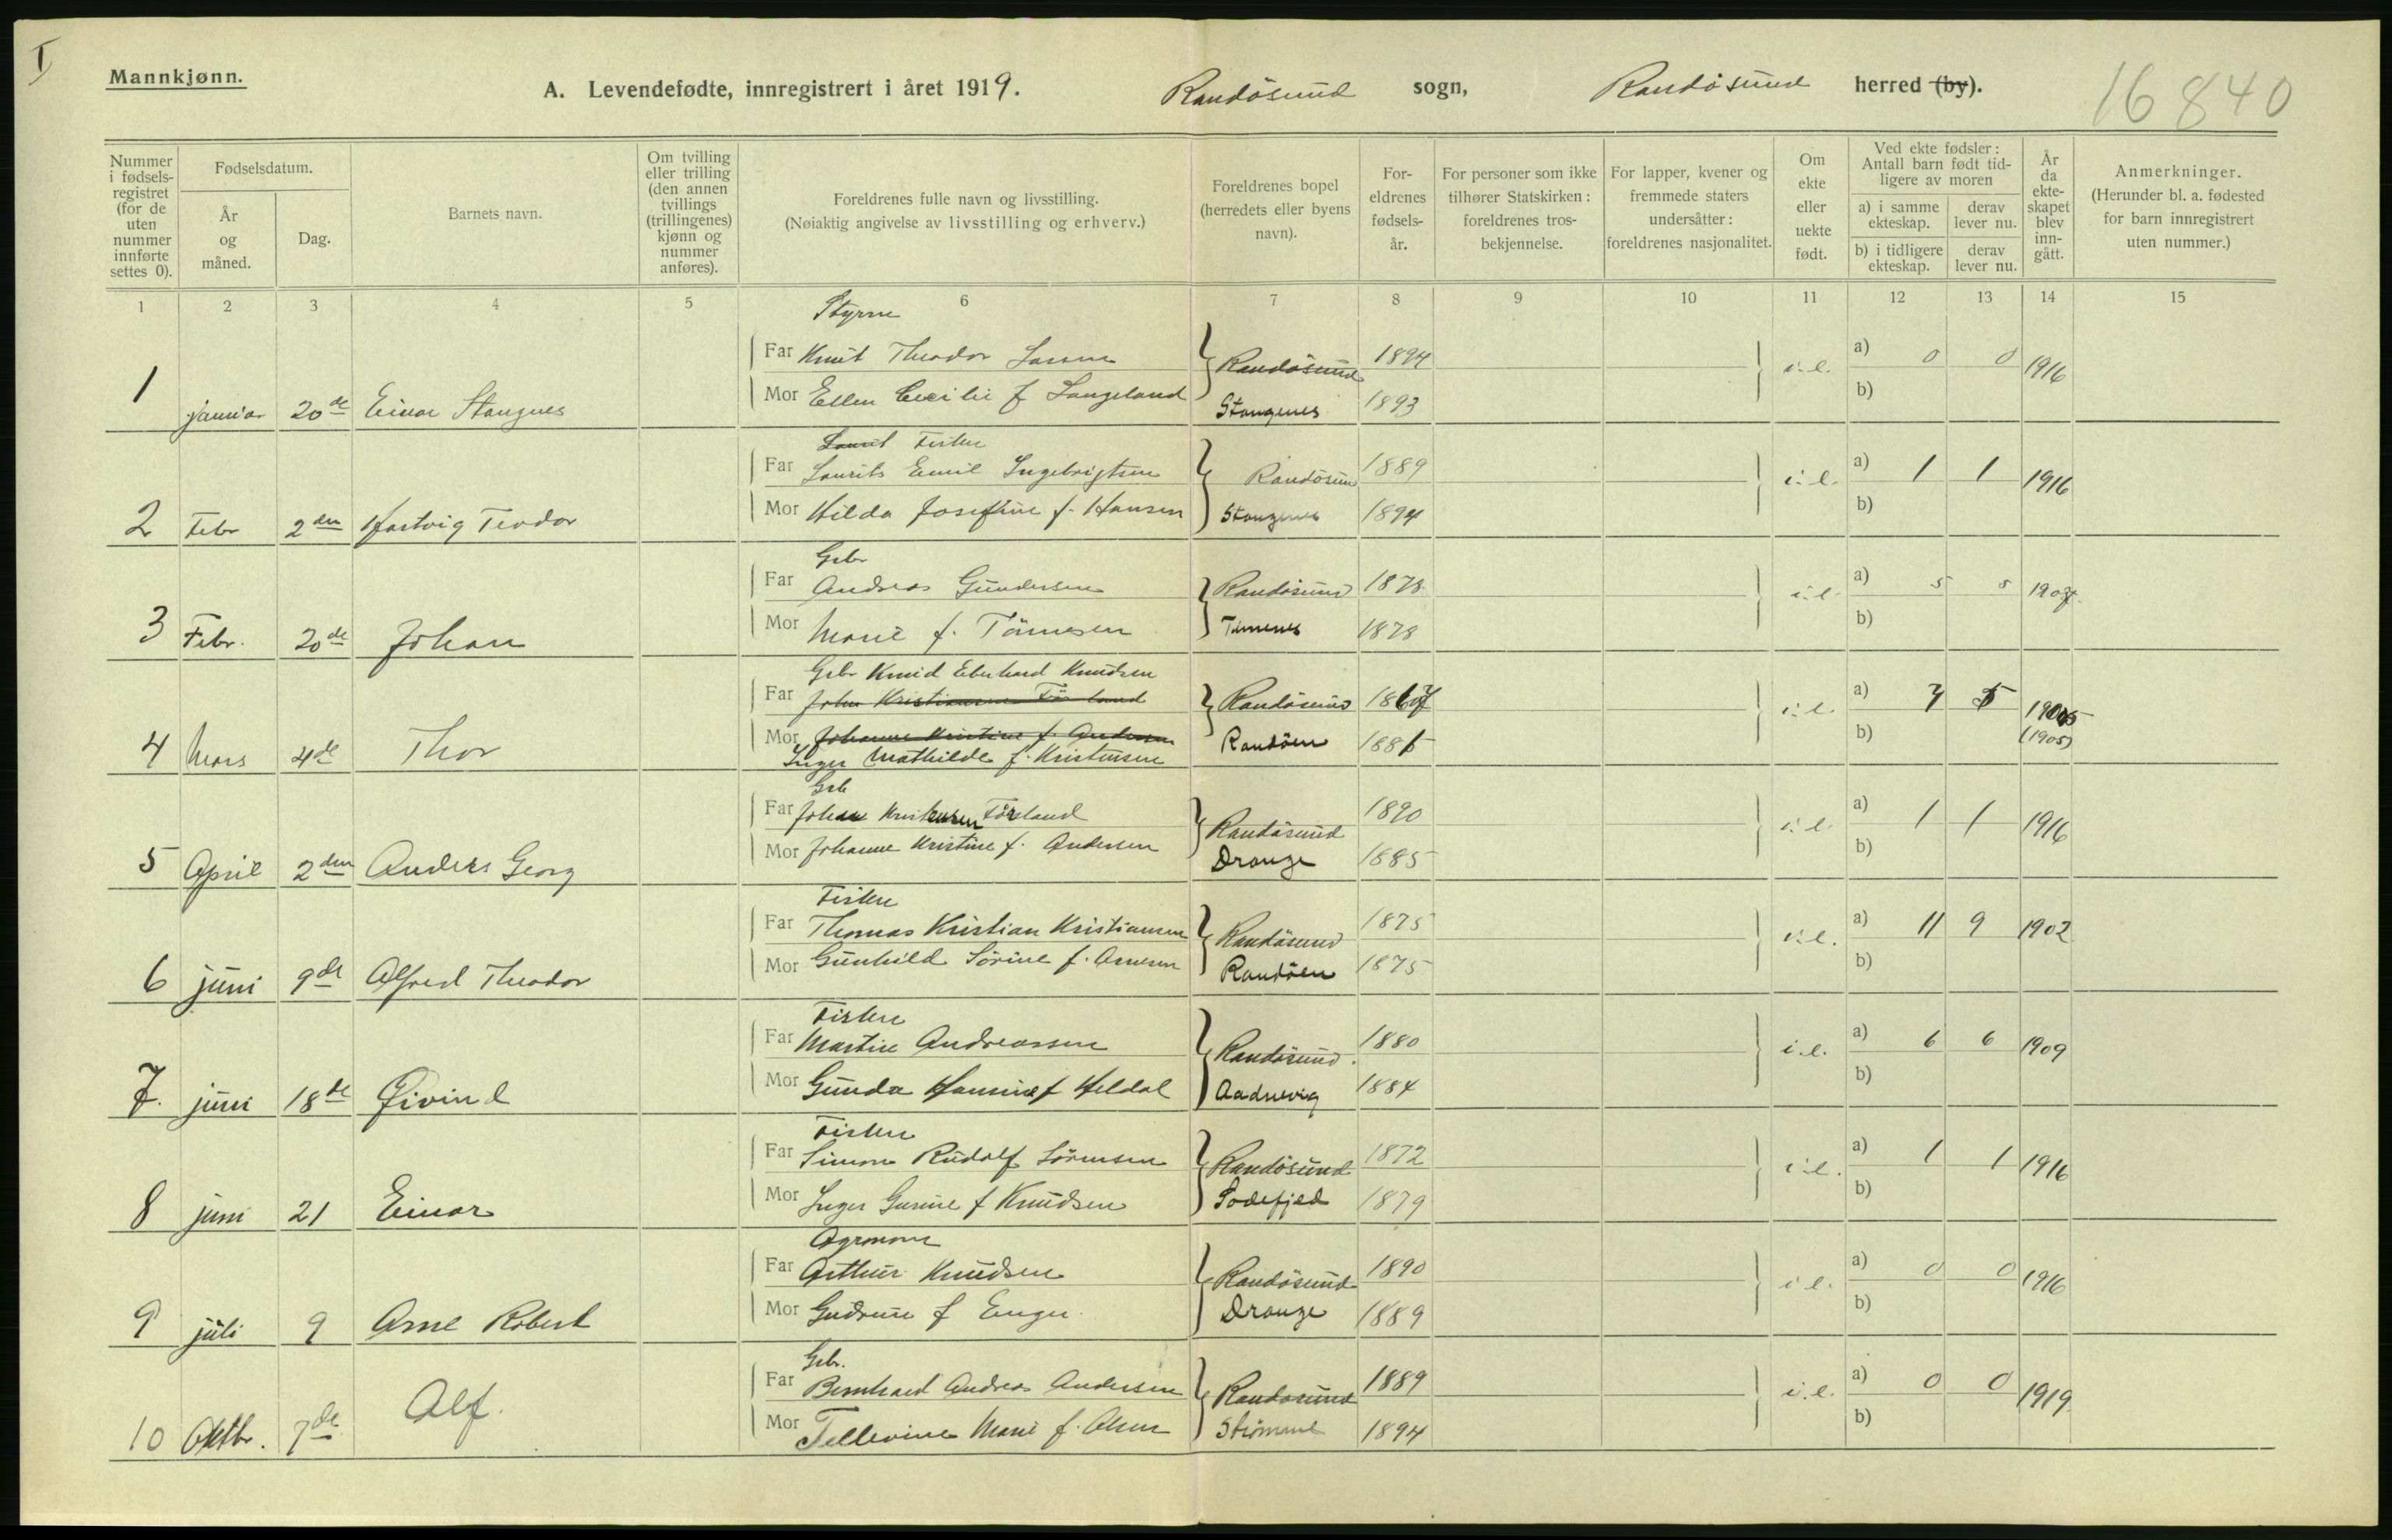 I
Mannkjønn.
A. Levendefødte, innregistrert i året 1919. Randösund sogn, Randösund herred (by).
16840
Nummer i fødselsregistret (for de uten nummer innførte settes 0).
Fødselsdatum.
År og måned.
Dag.
Barnets navn.
Om tvilling eller trilling (den annen tvillings (trillingenes) kjønn og nummer anføres).
Foreldrenes fulle navn og livsstilling.
(Nøiaktig angivelse av livsstilling og erhverv.)
Foreldrenes bopel (herredets eller byens navn).
Foreldrenes fødselsår.
For personer som ikke tilhører Statskirken: foreldrenes trosbekjennelse.
For lapper, kvener og fremmede staters undersåtter: foreldrenes nasjonalitet.
Om ekte eller uekte født.
Ved ekte fødsler: Antall barn født tidligere av moren
a) i samme ekteskap.
derav lever nu.
b) i tidligere ekteskap.
derav lever nu.
År da ekteskapet blev inngått.
Anmerkninger.
(Herunder bl. a. fødested for barn innregistrert uten nummer.)
1 2 3 4 5 6 7 8 9 10 11 12 13 14 15
Styrm
Far Knut Theodor Larsen Randösund 1894 i.e. a) 0 0 1916
Mor Ellen Cecilie f Langeland Stangenes 1893 b)
1 januar 20de Einar Stangnes
Laurit Fisker
Far Laurits Emil Ingebrigtsen Randösund 1889 i.e. a) 1 1 1916
Mor Hilda Josefine f. Hansen Stangenes 1894 b)
2 Febr 2den Hartvig Teodor
Gbr
Far Andreas Gundersen Randösund 1878 i.e. a) 5 5 1907
Mor Marie f. Tönnesen Timenes 1878 b)
3 Febr. 20de Johan
Gbr Knud Eberhard Knudsen
Far Johan Kristiansen Försland Randösund 1867 i.e. a) 7 5 1905
Mor Johanne Kristine f. Andersen Randöen 1881 b) (1905)
Inger Mathilde f. Kristensen
4 Mars 4de Thor
Gbr
Far Johan Kristensen Försland Randösund 1890 i.e. a) 1 1 1916
Mor Johanne Kristine f. Andersen Drange 1885 b)
5 April 2den Anders Georg
Fisker
Far Thomas Kristian Kristiansen Randösund 1875 i.e. a) 11 9 1902
Mor Gunhild Sörine f. Arnesen Randöen 1875 b)
6 juni 9de Alfred Theodor
Fisker
Far Martin Andreassen Randösund 1880 i.e. a) 6 6 1909
Mor Gunda Hansine f Heldal Aadnevig 1884 b)
7. juni 18de Øivind
Fisker
Far Simon Rudolf Sörensen Randösund 1872 i.e. a) 1 1 1916
Mor Inger Gurine f Knudsen Sodefjed 1879 b)
8 juni 21 Einar
Agronom
Far Arthur Knudsen Randösund 1890 i.e. a) 0 0 1916
Mor Gudrun f Enger Drange 1889 b)
9 juli 9 Arne Robert
Gbr.
Far Bernhard Andreas Andersen Randösund 1889 i.e. a) 0 0 1919
Mor Tellevine Marie f. Olsen Strömme 1894 b)
10 Oktbr. 7de Alf.